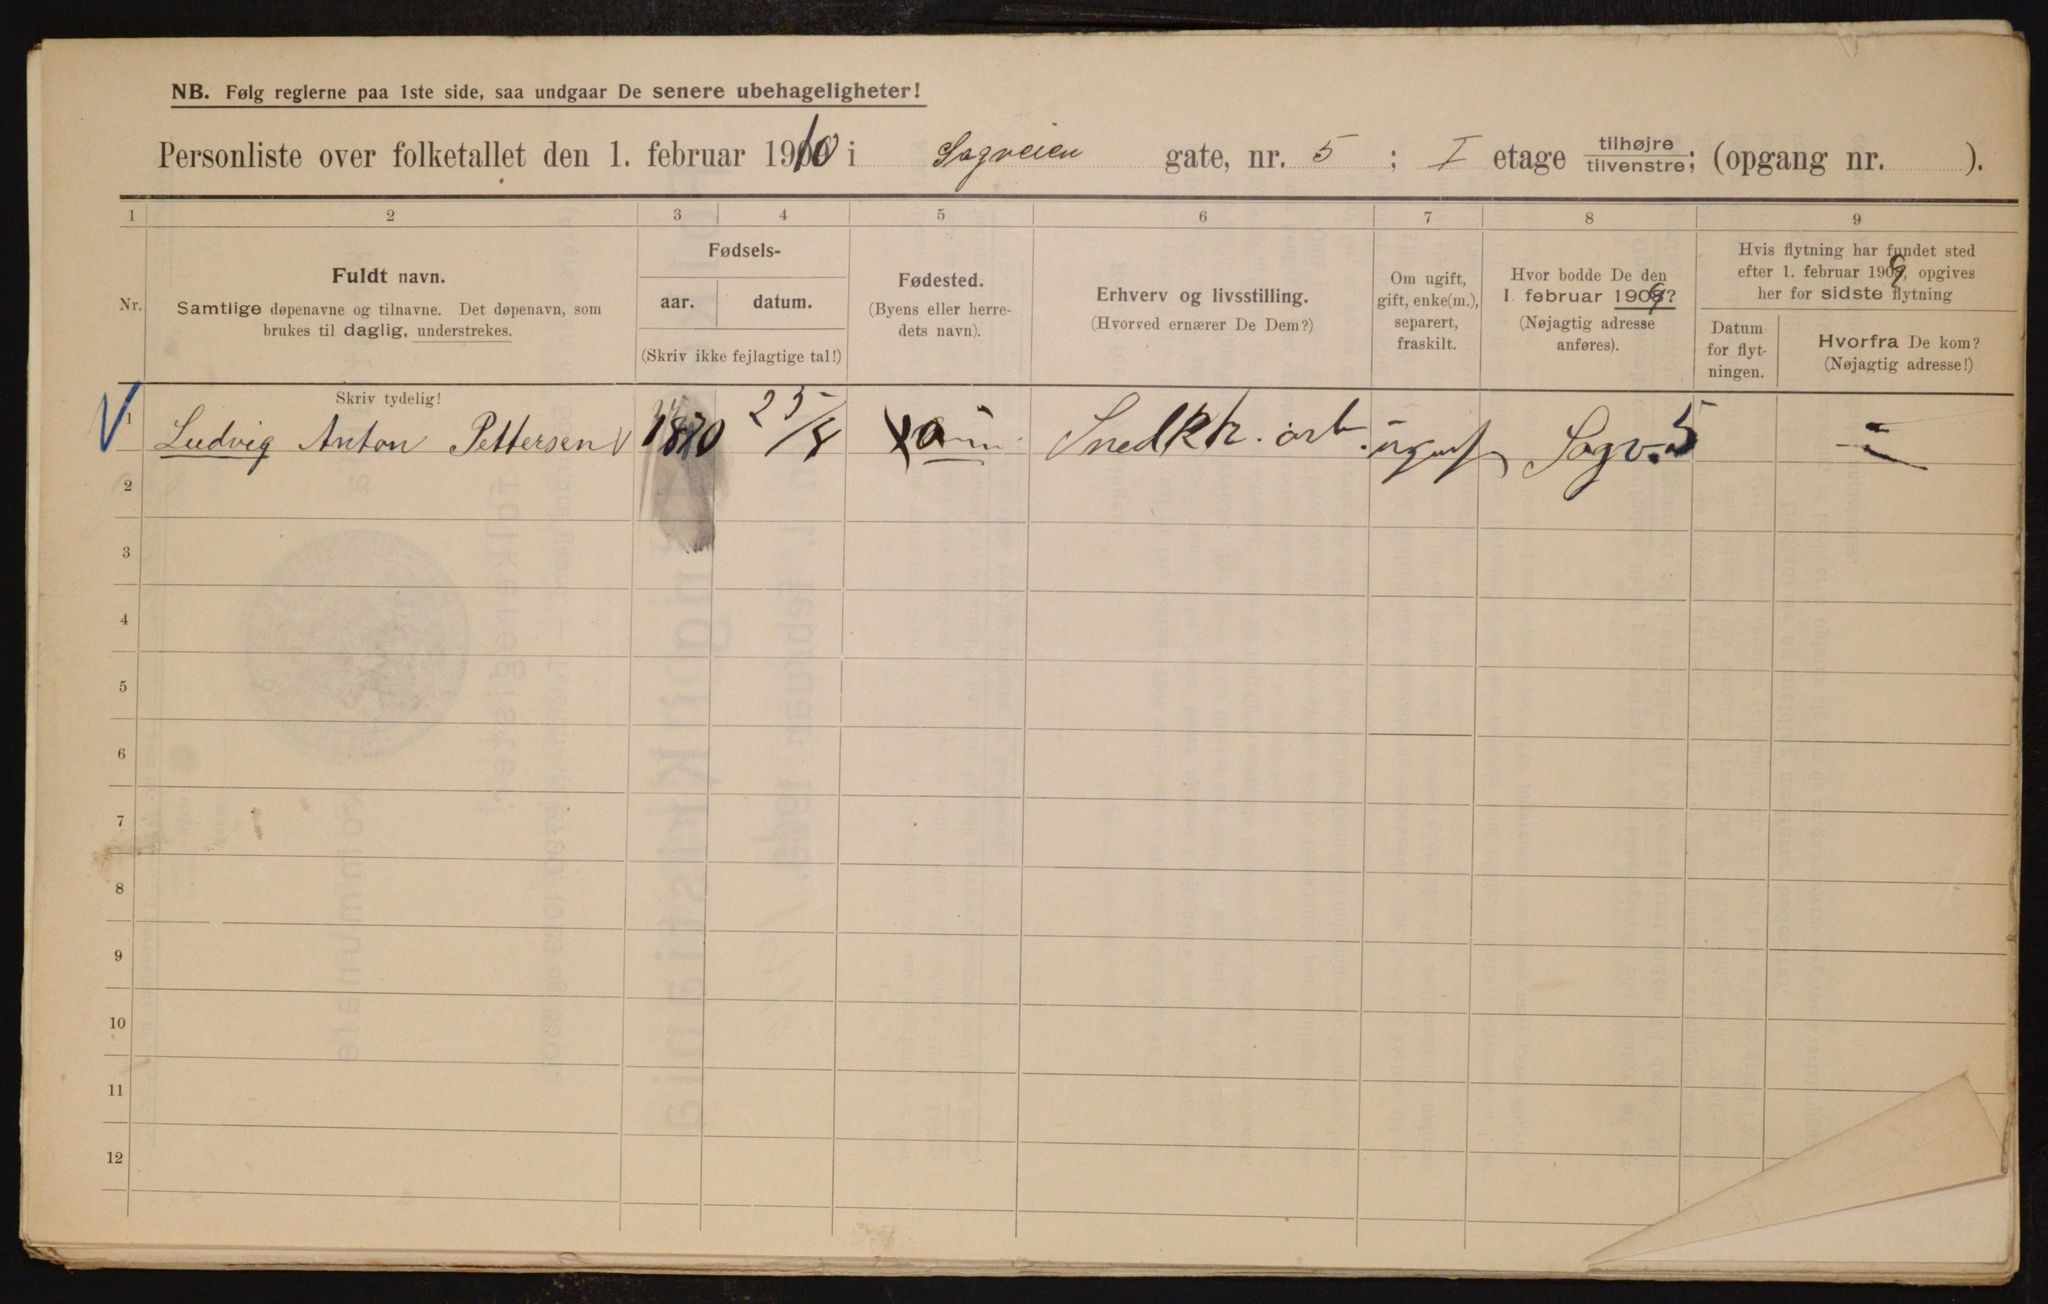 NB. Følg reglerne paa 1ste side, saa undgaar De senere ubehageligheter!
Personliste over folketallet den 1. februar 1910 i Sagveien gate, nr. 5 ; I etage tilhøjre tilvenstre; (opgang nr. ).
1 2 3 4 5 6 7 8 9
Nr.
Fuldt navn.
Samtlige døpenavne og tilnavne. Det døpenavn, som
brukes til daglig, understrekes.
Fødsels-
aar. datum.
(Skriv ikke fejlagtige tal!)
Fødested.
(Byens eller herre-
dets navn).
Erhverv og livsstilling.
(Hvorved ernærer De Dem?)
Om ugift,
gift, enke(m.),
separert,
fraskilt.
Hvor bodde De den
1 februar 1909?
(Nøjagtig adresse
anføres).
Hvis flytning har fundet sted
efter 1. februar 1909, opgives
her for sidste flytning
Datum
for flyt-
ningen.
Hvorfra De kom?
(Nøjagtig adresse!)
Skriv tydelig!
1 Ludvig Anton Pettersen 1870 25/8 Snedkr. arb. ugift Sagv. 5
2
3
4
5
6
7
8
9
10
11
12